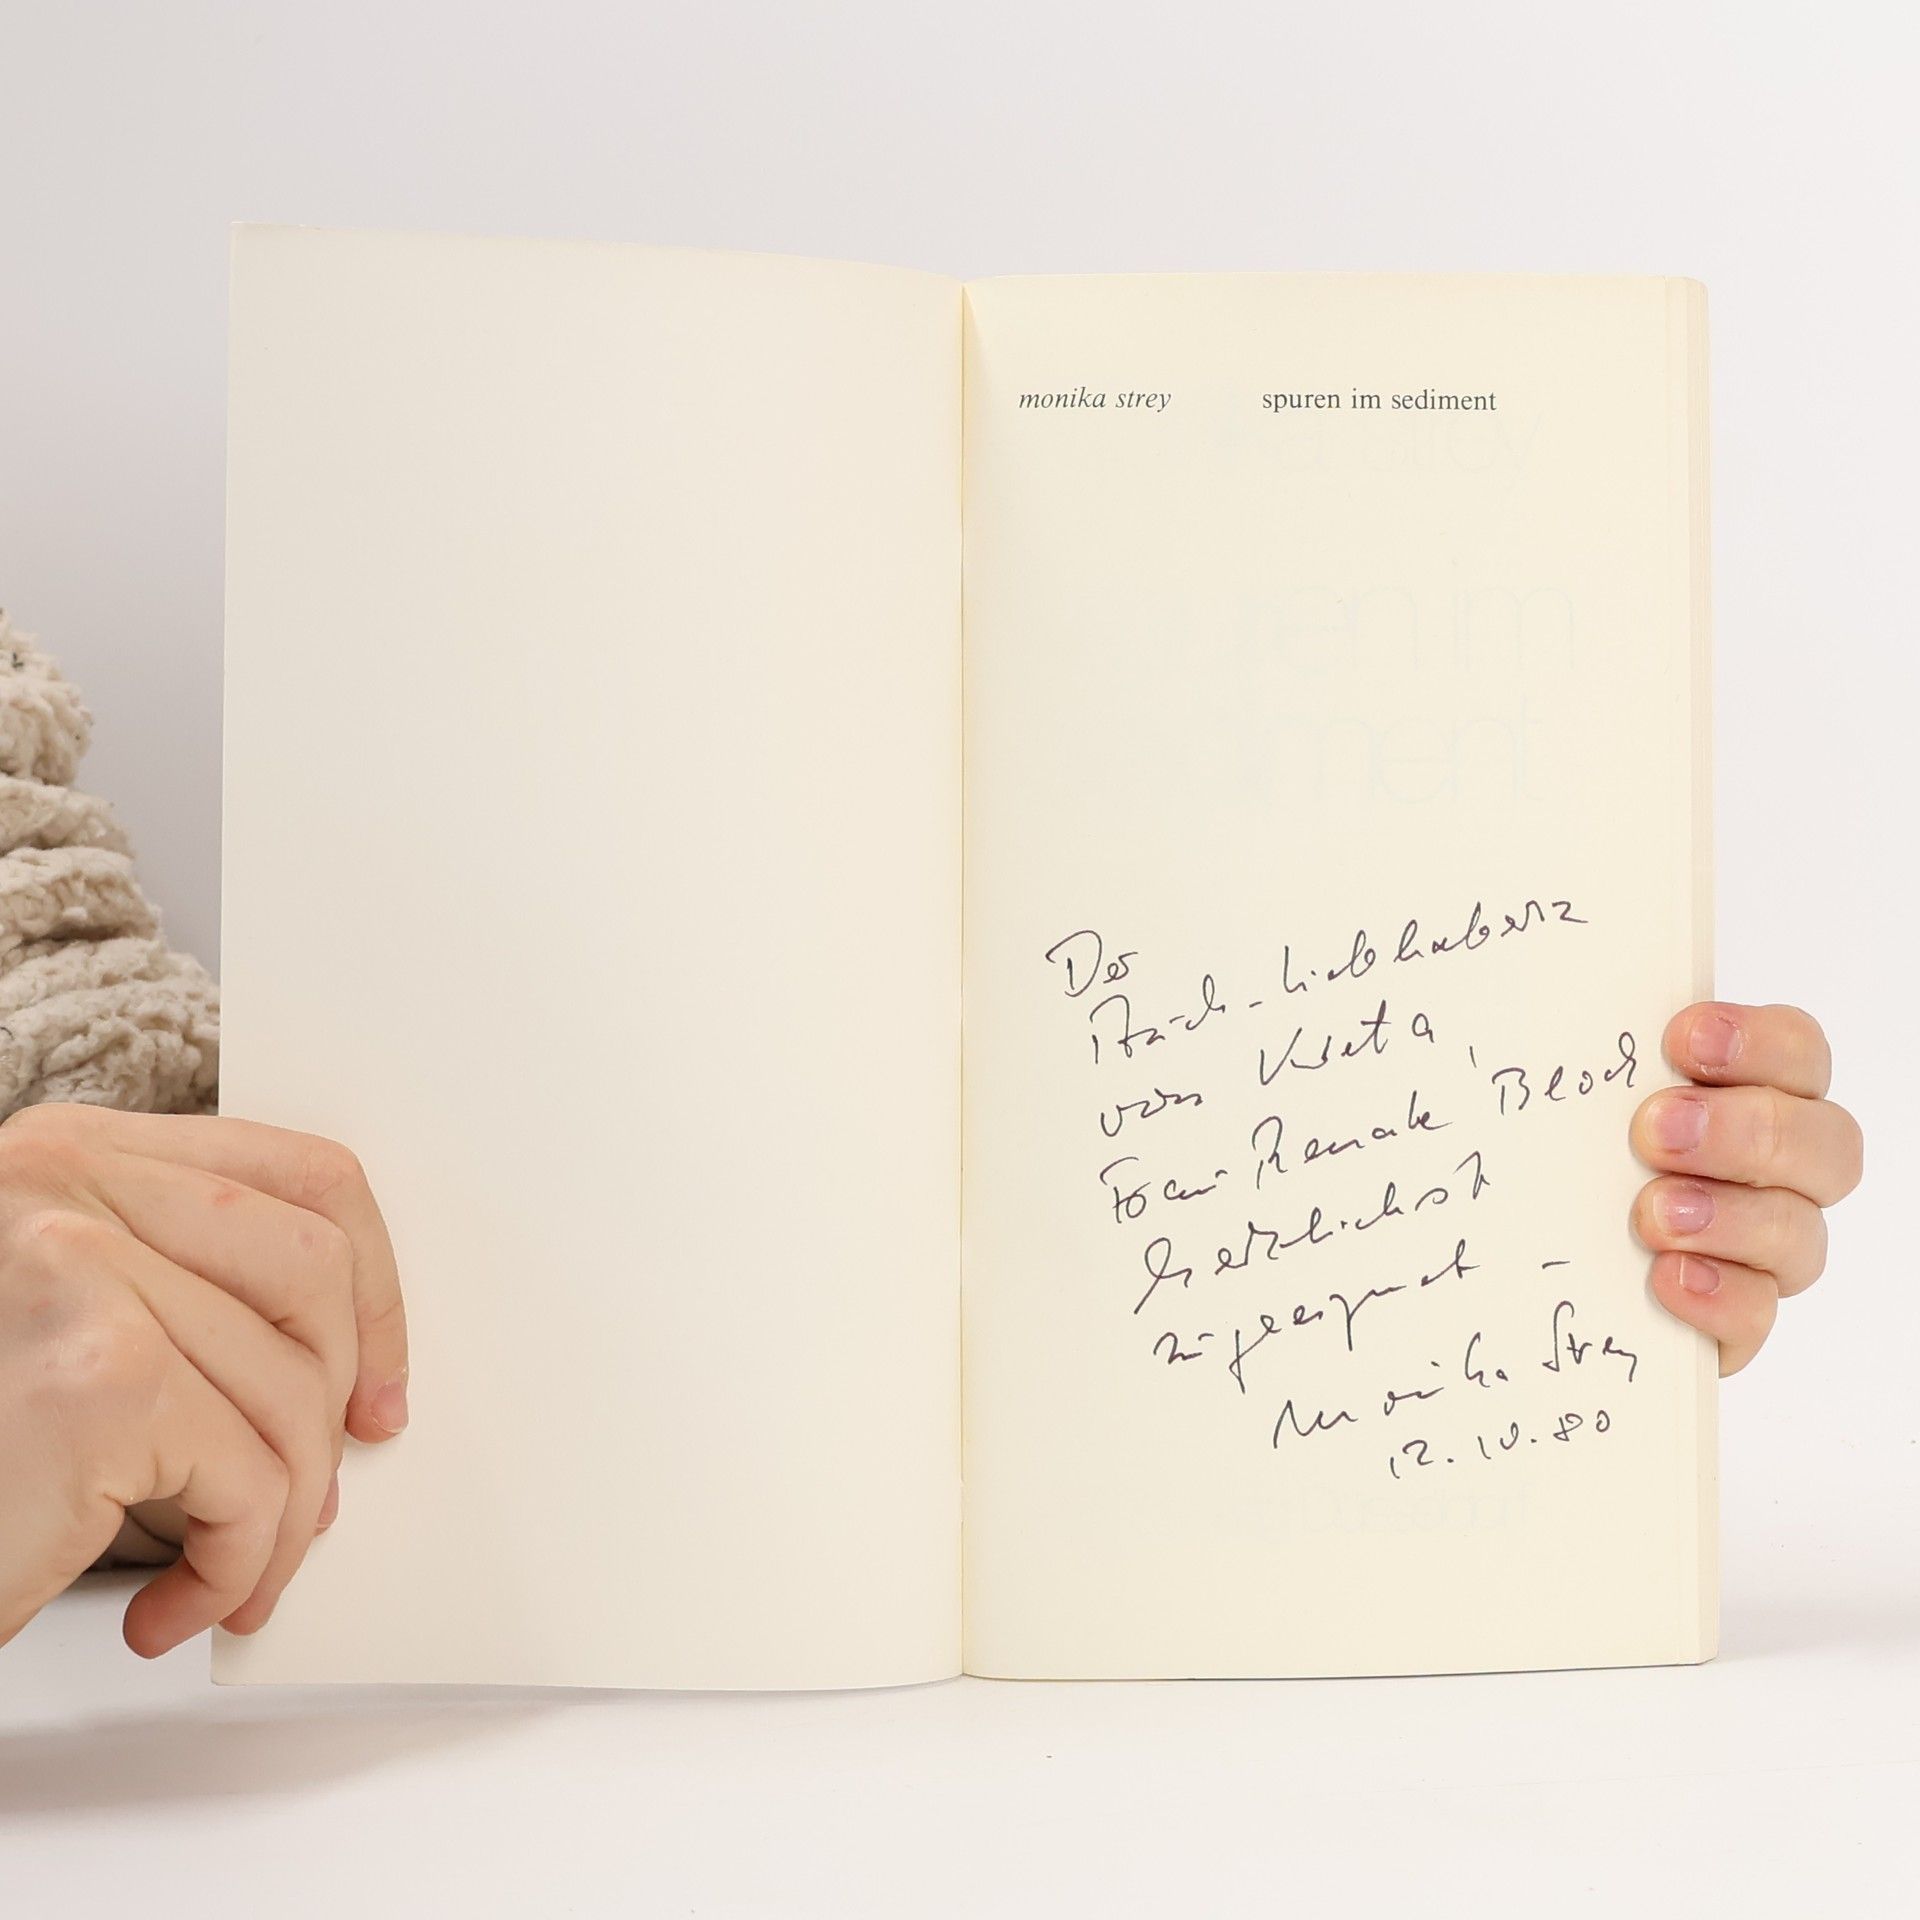 monika strey spuren im sediment
Der
Auch-Liebhaberin
von Kreta,
Frau Renate Bloch
herzlichst
zugeeignet –
Monika Strey
12.10.80